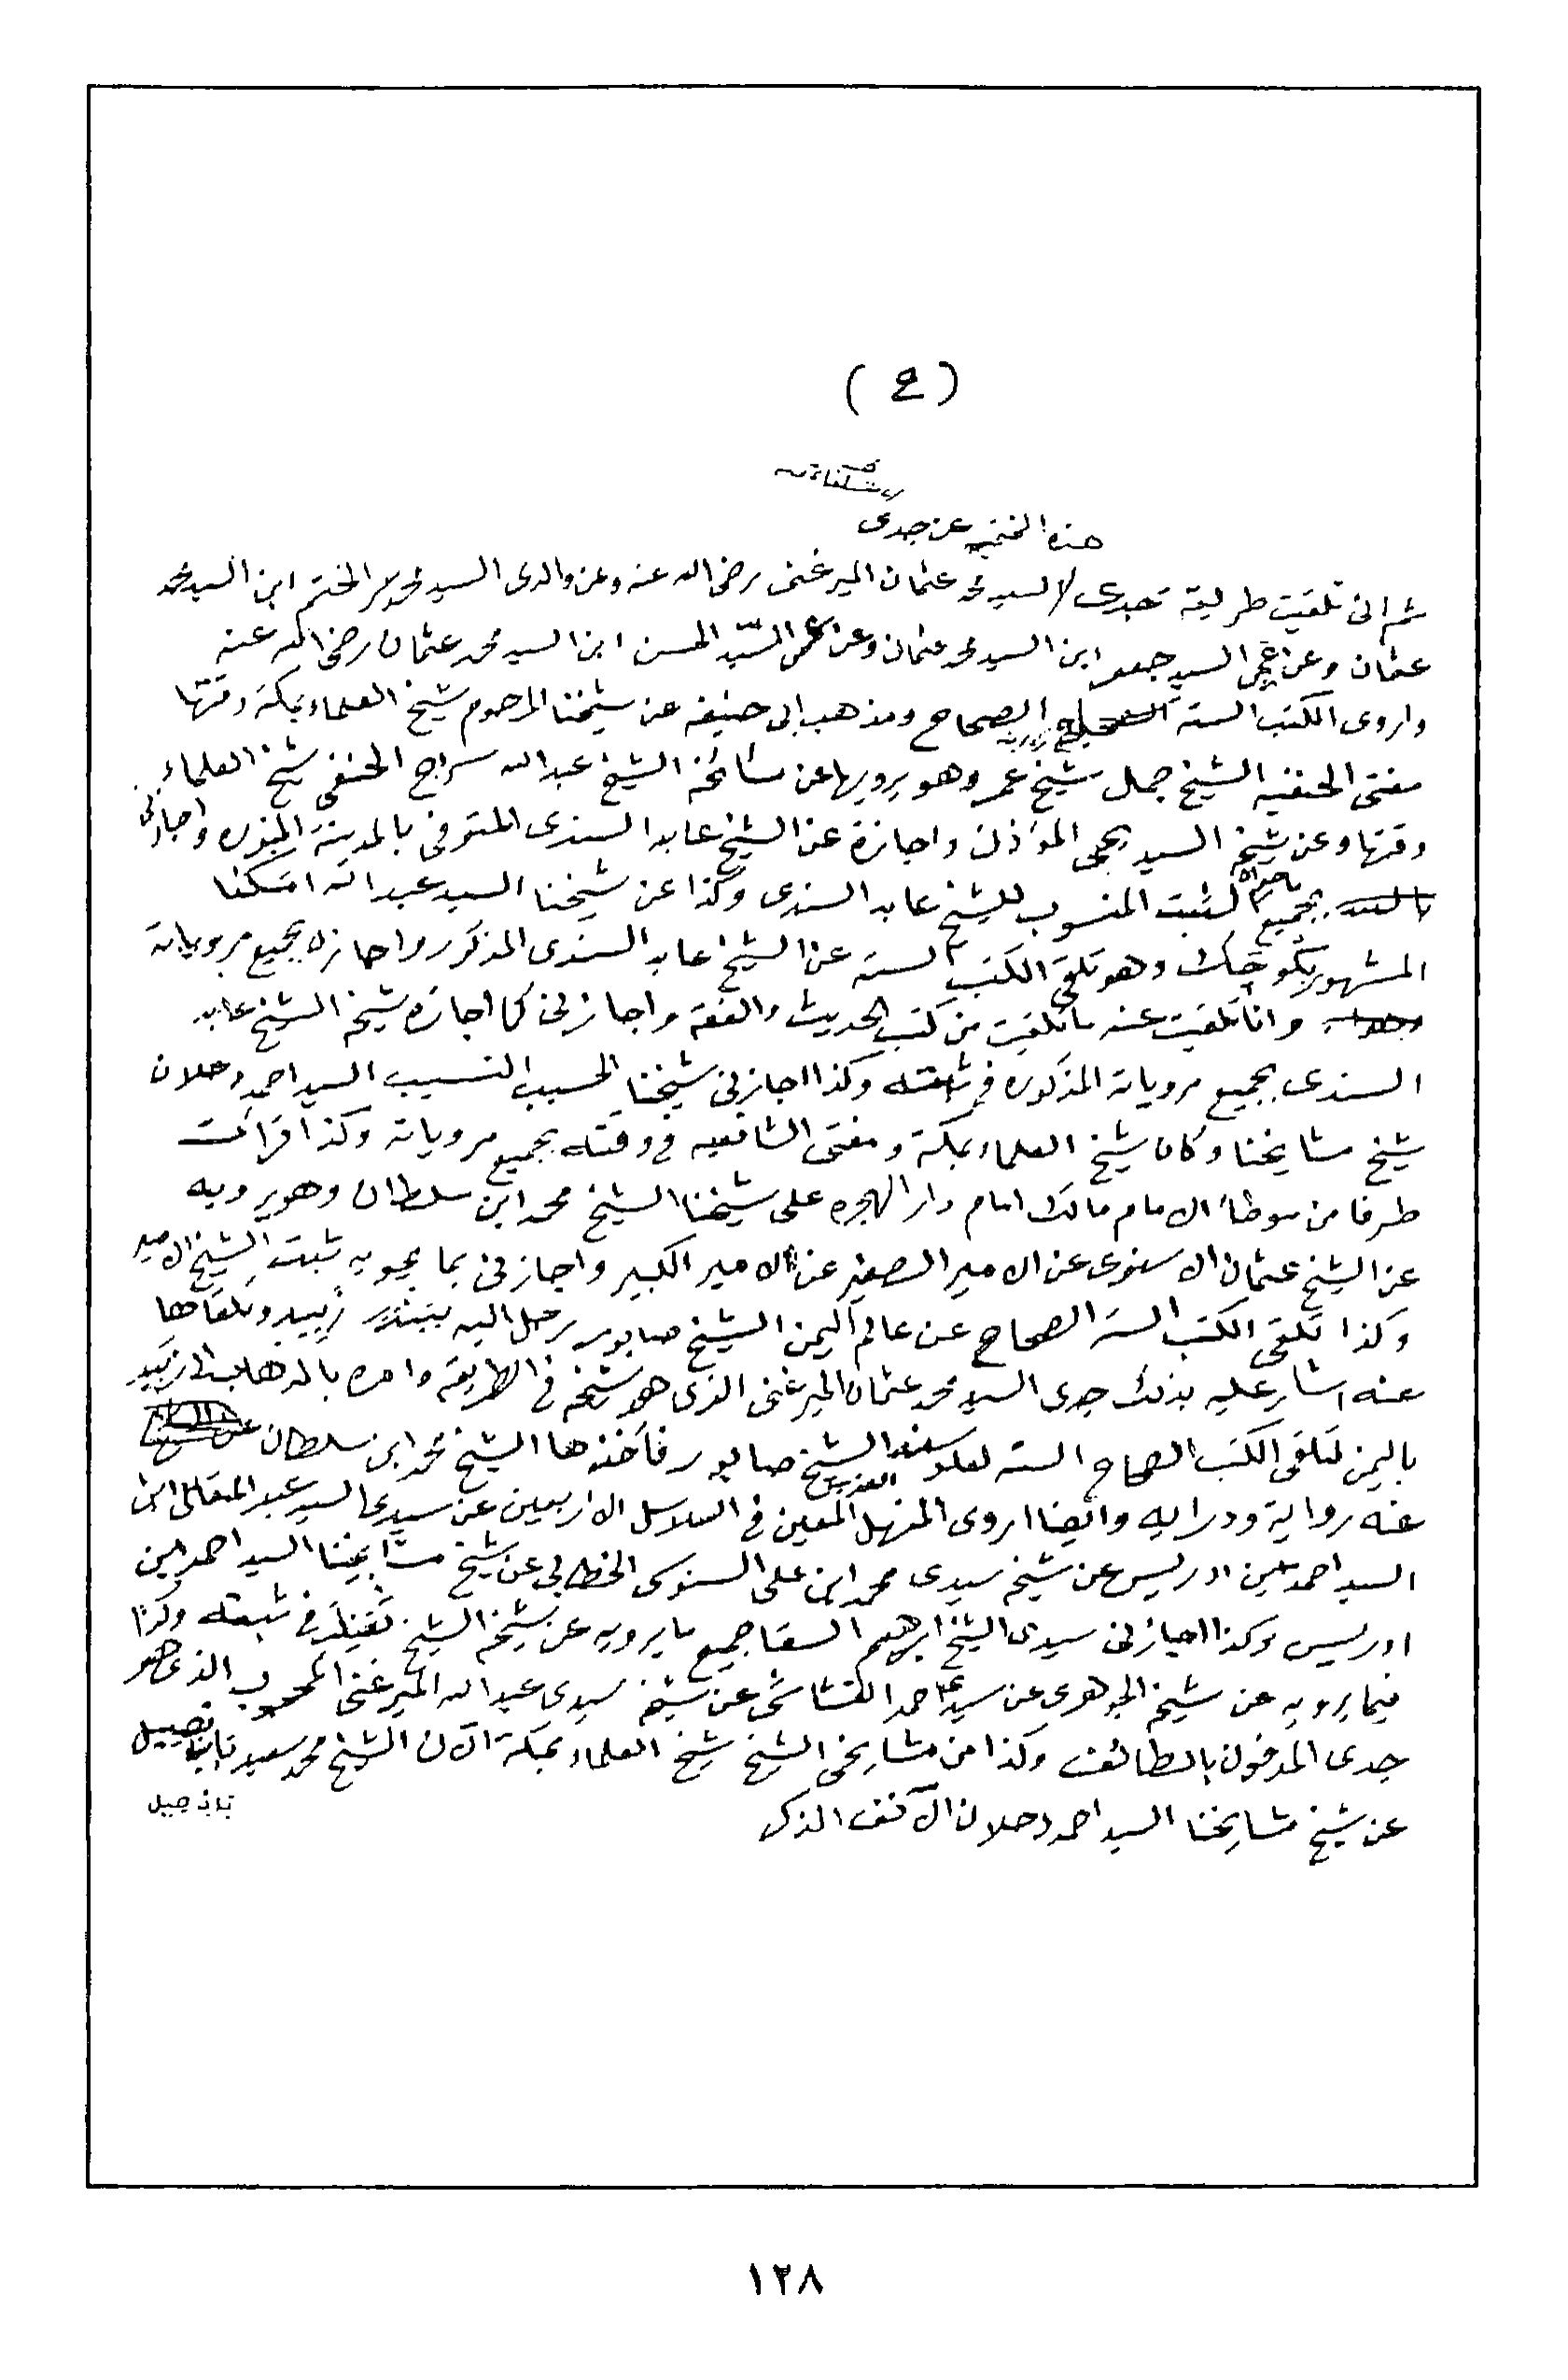 ( ٤ )
هذه الختمية عن جدى
ثم انى تلقيت طريقة جدى السيد محمد عثمان الميرغنى رضى الله عنه وعن والدى السيد محمد سر الختم ابن السيد محمد
عثمان وعن عمى السيد جعفر ابن السيد محمد عثمان وعن عمى السيد الحسن ابن السيد محمد عثمان رضى الله عنه
واروى الكتب الستة الصحاح ومذهب ابى حنيفه عن شيخنا المرحوم شيخ العلماء بمكة وقتها
مفتى الحنفيه الشيخ جمال شيخ عمر وهو يرويها عن مشائخه الشيخ عبد الله سراج الحنفى شيخ العلماء
وقتها وعن شيخه السيد يحيى المؤذن واجازة عن الشيخ عابد السندى المتوفى بالمدينة المنوره واجازنى
بجميع ماحواه الثبت المنسوب للشيخ عابد السندى وكذا عن شيخنا السيد عبد الله
المشهور بكوجك وهو تلقى الكتب الستة عن الشيخ عابد السندى المذكور واجازه بجميع مروياته
وانا تلقيت عنه ما تلقيت من كتب الحديث والفقه واجازنى كما اجازه شيخه الشيخ عابد
السندى بجميع مروياته المذكوره فى ثبته وكذا اجازنى شيخنا الحسيب النسيب السيد احمد دحلان
شيخ مشايخنا وكان شيخ العلماء بمكة ومفتى الشافعيه فى وقته بجميع مروياته وكذا قرائت
طرفا من موطأ الامام مالك امام دار الهجره على شيخنا الشيخ محمد ابن سلطان وهو يرويه
عن الشيخ عثمان الاسنوى عن الامير الصغير عن الامير الكبير واجازنى بما يحويه ثبت الشيخ الامير
وكذا تلقى الكتب الستة الصحاح عن عالم اليمن الشيخ صابور رحل اليه ببندر زبيد وتلقاها
عنه اشار عليه بذلك جدى السيد محمد عثمان الميرغنى الذى هو شيخه فى الطريقه وامره بالذهاب الى زبيد
باليمن لتلقى الكتب الصحاح الستة لعلو سند الشيخ صابور فأخذها الشيخ محمد ابن سلطان
عنه رواية ودرايه وايضا اروى المنهل المعين فى السلاسل الاربعين عن سيدى السيد عبد المتعال ابن
السيد احمد بن ادريس عن شيخه سيدى محمد ابن على السنوسى الخطابى عن شيخ مشايخنا السيد احمد ابن
ادريس وكذا اجازنى سيدى الشيخ ابرهيم السقا جميع ما يرويه عن شيخه الشيخ ثعيلب فى ثبته وكذا
فيما يرويه عن شيخه الجوهرى عن سيدى احمد القشاشى عن شيخه سيدى عبد الله الميرغنى المحجوب الذى هو
جدى المدفون بالطائف وكذا من مشايخى الشيخ شيخ العلماء بمكة الآن الشيخ محمد سعيد بابصيل
بابصيل
عن شيخ مشايخنا السيد احمد دحلان الآنف الذكر
١٢٨